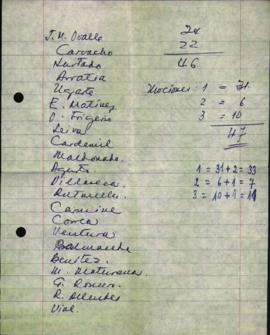 J. M. Ovalle
Carvacho
Hurtado
Arratia
Ugarte
E. Matinez
O. Frigerio
Leiva
Cardemil
Maldonado
Agurto
Villaseca
Carmine
Correa
Ventura
Balmaceda
Benitez
M. Maturana
G. Roman
R. Allendes
Vial
24
22
46
Mociones: 1 = 31
2 = 6
3 = 10
47
1 = 31 + 2 = 33
2 = 6 + 1 = 7
3 = 10 + 1 = 11